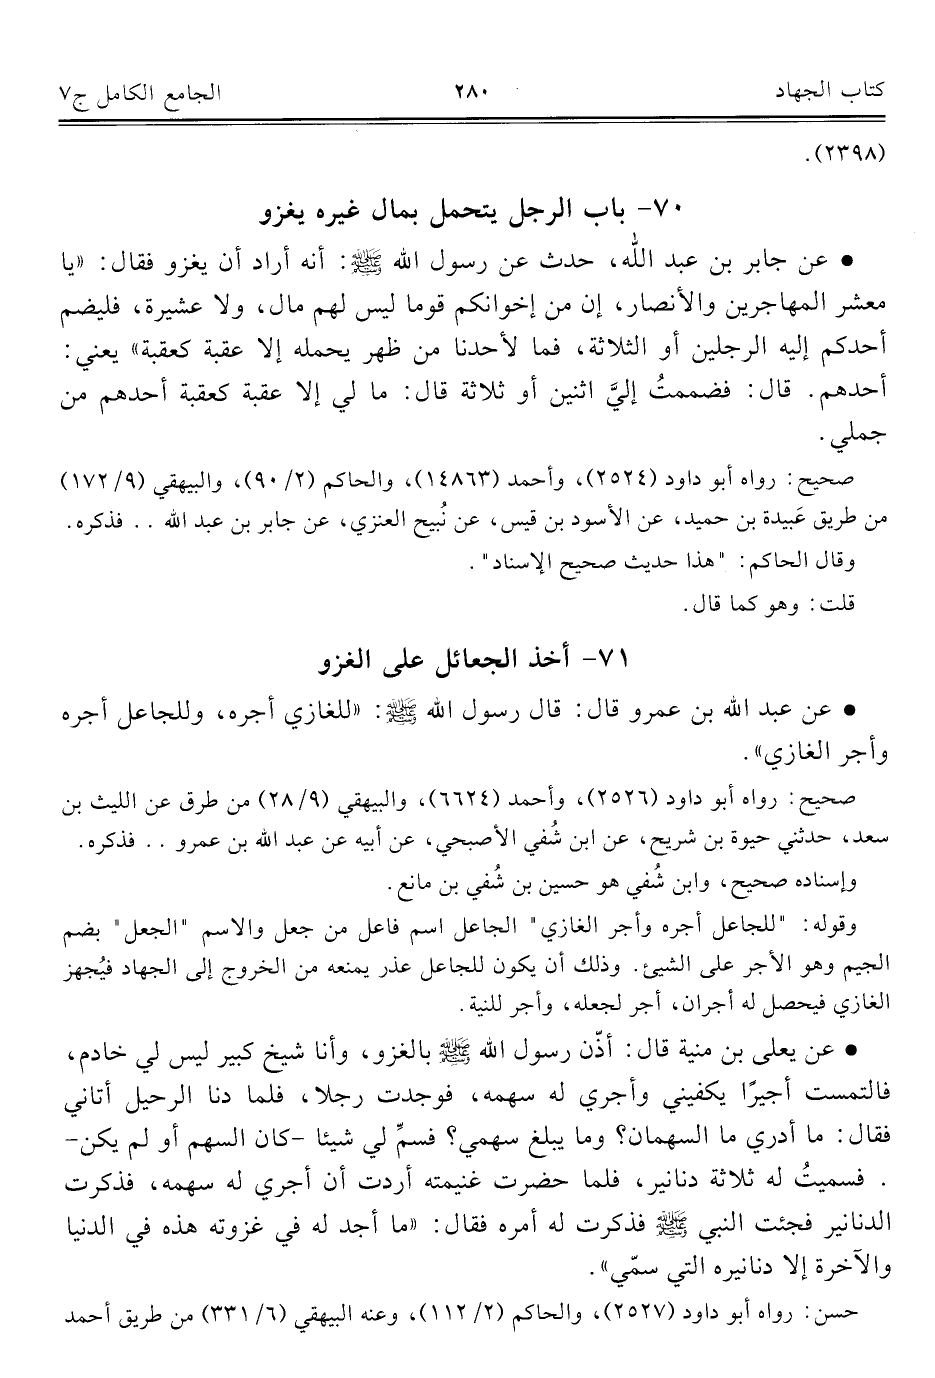 كتاب الجهاد ٢٨٠ الجامع الكامل ج٧
(٢٣٩٨).
٧٠- باب الرجل يتحمل بمال غيره يغزو
● عن جابر بن عبد الله، حدث عن رسول الله ﷺ: أنه أراد أن يغزو فقال: «يا
معشر المهاجرين والأنصار، إن من إخوانكم قوما ليس لهم مال، ولا عشيرة، فليضم
أحدكم إليه الرجلين أو الثلاثة، فما لأحدنا من ظهر يحمله إلا عقبة كعقبة» يعني:
أحدهم. قال: فضممتُ إليَّ اثنين أو ثلاثة قال: ما لي إلا عقبة كعقبة أحدهم من
جملي.
صحيح: رواه أبو داود (٢٥٢٤)، وأحمد (١٤٨٦٣)، والحاكم (٢/ ٩٠)، والبيهقي (٩/ ١٧٢)
من طريق عَبيدة بن حميد، عن الأسود بن قيس، عن نُبيح العنزي، عن جابر بن عبد الله .. فذكره.
وقال الحاكم: "هذا حديث صحيح الإسناد".
قلت: وهو كما قال.
٧١- أخذ الجعائل على الغزو
● عن عبد الله بن عمرو قال: قال رسول الله ﷺ: «للغازي أجره، وللجاعل أجره
وأجر الغازي».
صحيح: رواه أبو داود (٢٥٢٦)، وأحمد (٦٦٢٤)، والبيهقي (٩/ ٢٨) من طرق عن الليث بن
سعد، حدثني حيوة بن شريح، عن ابن شُفي الأصبحي، عن أبيه عن عبد الله بن عمرو .. فذكره.
وإسناده صحيح، وابن شُفي هو حسين بن شُفي بن مانع.
وقوله: "للجاعل أجره وأجر الغازي" الجاعل اسم فاعل من جعل والاسم "الجعل" بضم
الجيم وهو الأجر على الشيئ. وذلك أن يكون للجاعل عذر يمنعه من الخروج إلى الجهاد فيُجهز
الغازي فيحصل له أجران، أجر لجعله، وأجر للنية.
● عن يعلى بن منية قال: أذّن رسول الله ﷺ بالغزو، وأنا شيخ كبير ليس لي خادم،
فالتمست أجيرًا يكفيني وأجري له سهمه، فوجدت رجلا، فلما دنا الرحيل أتاني
فقال: ما أدري ما السهمان؟ وما يبلغ سهمي؟ فسمِّ لي شيئا -كان السهم أو لم يكن-
. فسميتُ له ثلاثة دنانير، فلما حضرت غنيمته أردت أن أجري له سهمه، فذكرت
الدنانير فجئت النبي ﷺ فذكرت له أمره فقال: «ما أجد له في غزوته هذه في الدنيا
والآخرة إلا دنانيره التي سمّي».
حسن: رواه أبو داود (٢٥٢٧)، والحاكم (٢/ ١١٢)، وعنه البيهقي (٦/ ٣٣١) من طريق أحمد